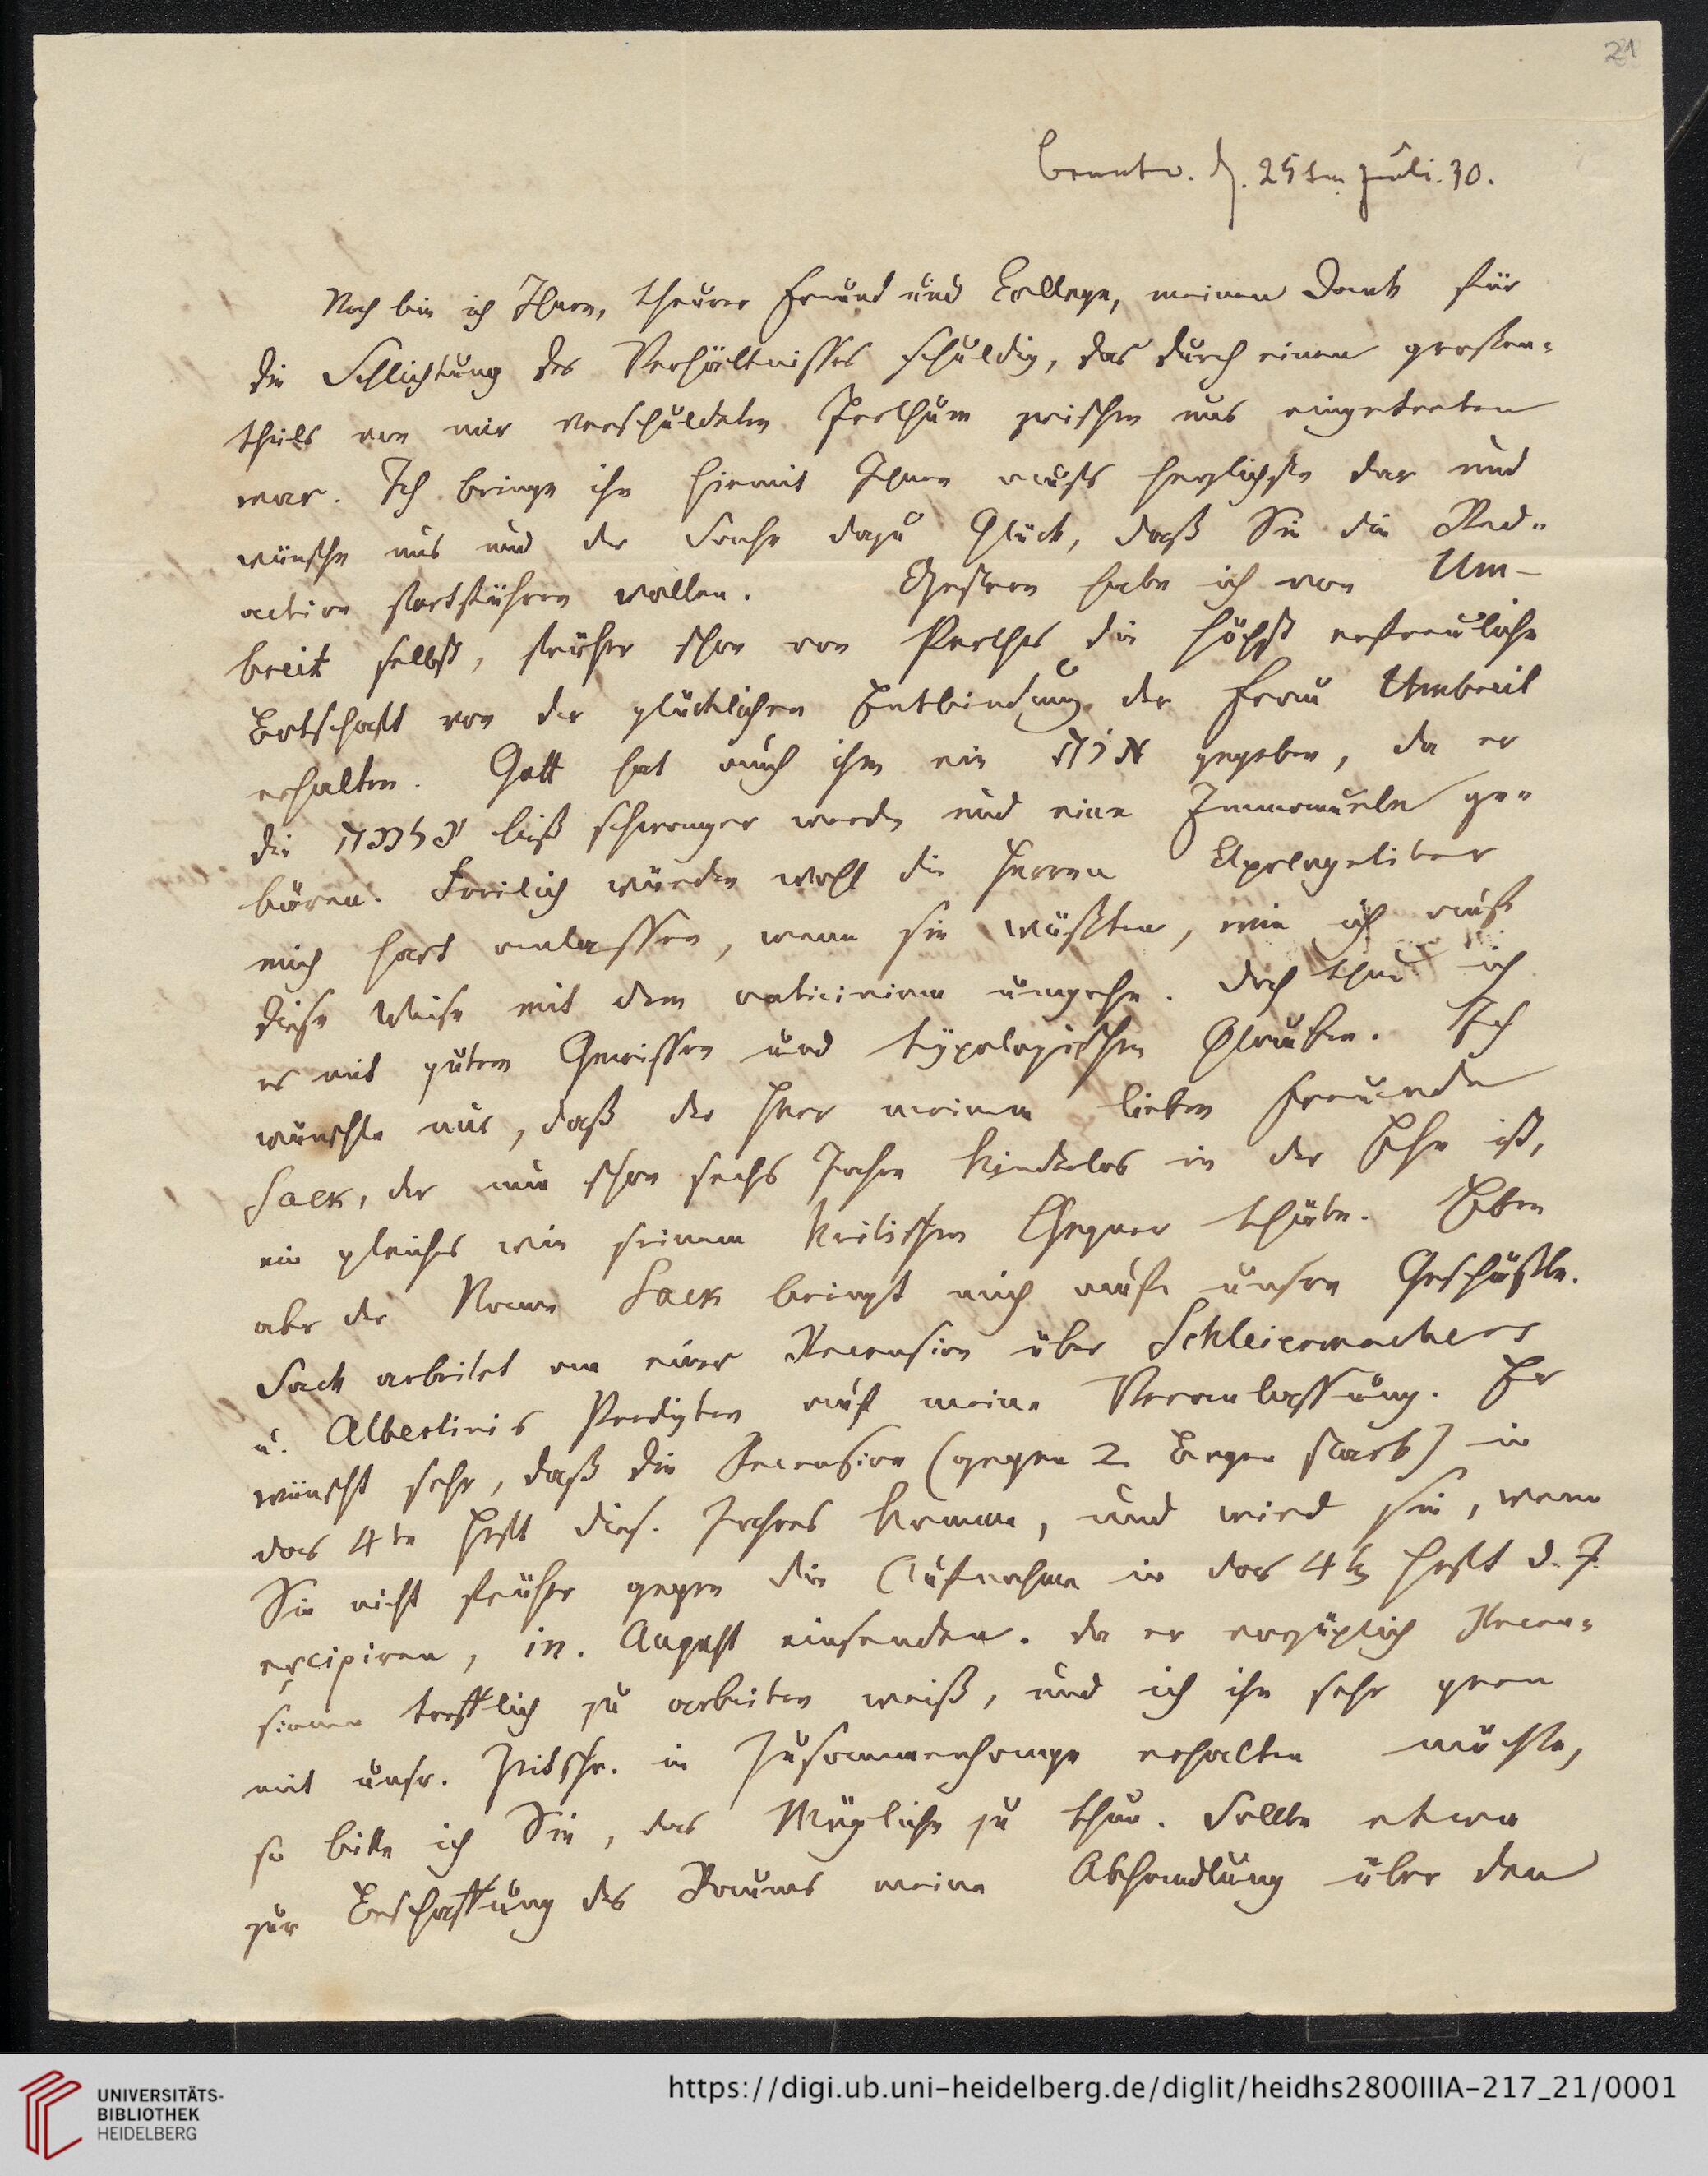 21
beantw. d. 25ten Juli. 30.
Noch bin ich Ihnen, theurer Freund und College, meinen Dank für
die Schlichtung des Verhältnisses schuldig, das durch einen großen-
theils von mir verschuldeten Irrthum zwischen uns eingetreten
war. Ich bringe ihn hiemit Ihnen aufs herzlichste dar und
wünsche uns und der Sache dazu Glück, daß Sie die Red-
action fortführen wollen. Gestern habe ich von Um-
breit selbst, früher schon von Perthes die höchst erfreuliche
Botschaft von der glücklichen Entbindung der Frau Umbreit
erhalten. Gott hat auch ihm ein אות gegeben, da er
die עלמה ließ schwanger werden und eine Immanuele ge-
bären. Freilich würden wohl die Herren Apologetiker
mich hart anlassen, wenn sie wüßten, wie ich auf
diese Weise mit dem vaticinium umgehe. Doch thue ich
es mit gutem Gewissen und typologischem Glauben. Ich
wünschte nur, daß der Herr meinem lieben Freunde
Sack, der nun schon sechs Jahre kinderlos in der Ehe ist,
ein gleiches wie seinem kritischen Gegner thäte. Eben
aber der Name Sack bringt mich auf unsre Geschäfte.
Sack arbeitet an einer Recension über Schleiermachers
u. Albertinis Predigten auf meine Veranlassung. Er
wünscht sehr, daß die Recension (gegen 2 Bogen stark) in
das 4te Heft dies. Jahres komme, und wird sie, wenn
Sie nicht früher gegen die Aufnahme in das 4te Heft d. J.
excipiren, in. August einsenden. Da er vorzüglich Recen-
sionen trefflich zu arbeiten weiß, und ich ihn sehr gern
mit unsr. Zeitschr. in Zusammenhange erhalten möchte,
so bitte ich Sie, das Mögliche zu thun. Sollte etwa
zur Beschaffung des Raums meine Abhandlung über den
UNIVERSITÄTS-
BIBLIOTHEK
HEIDELBERG
https://digi.ub.uni-heidelberg.de/diglit/heidhs2800IIIA-217_21/0001